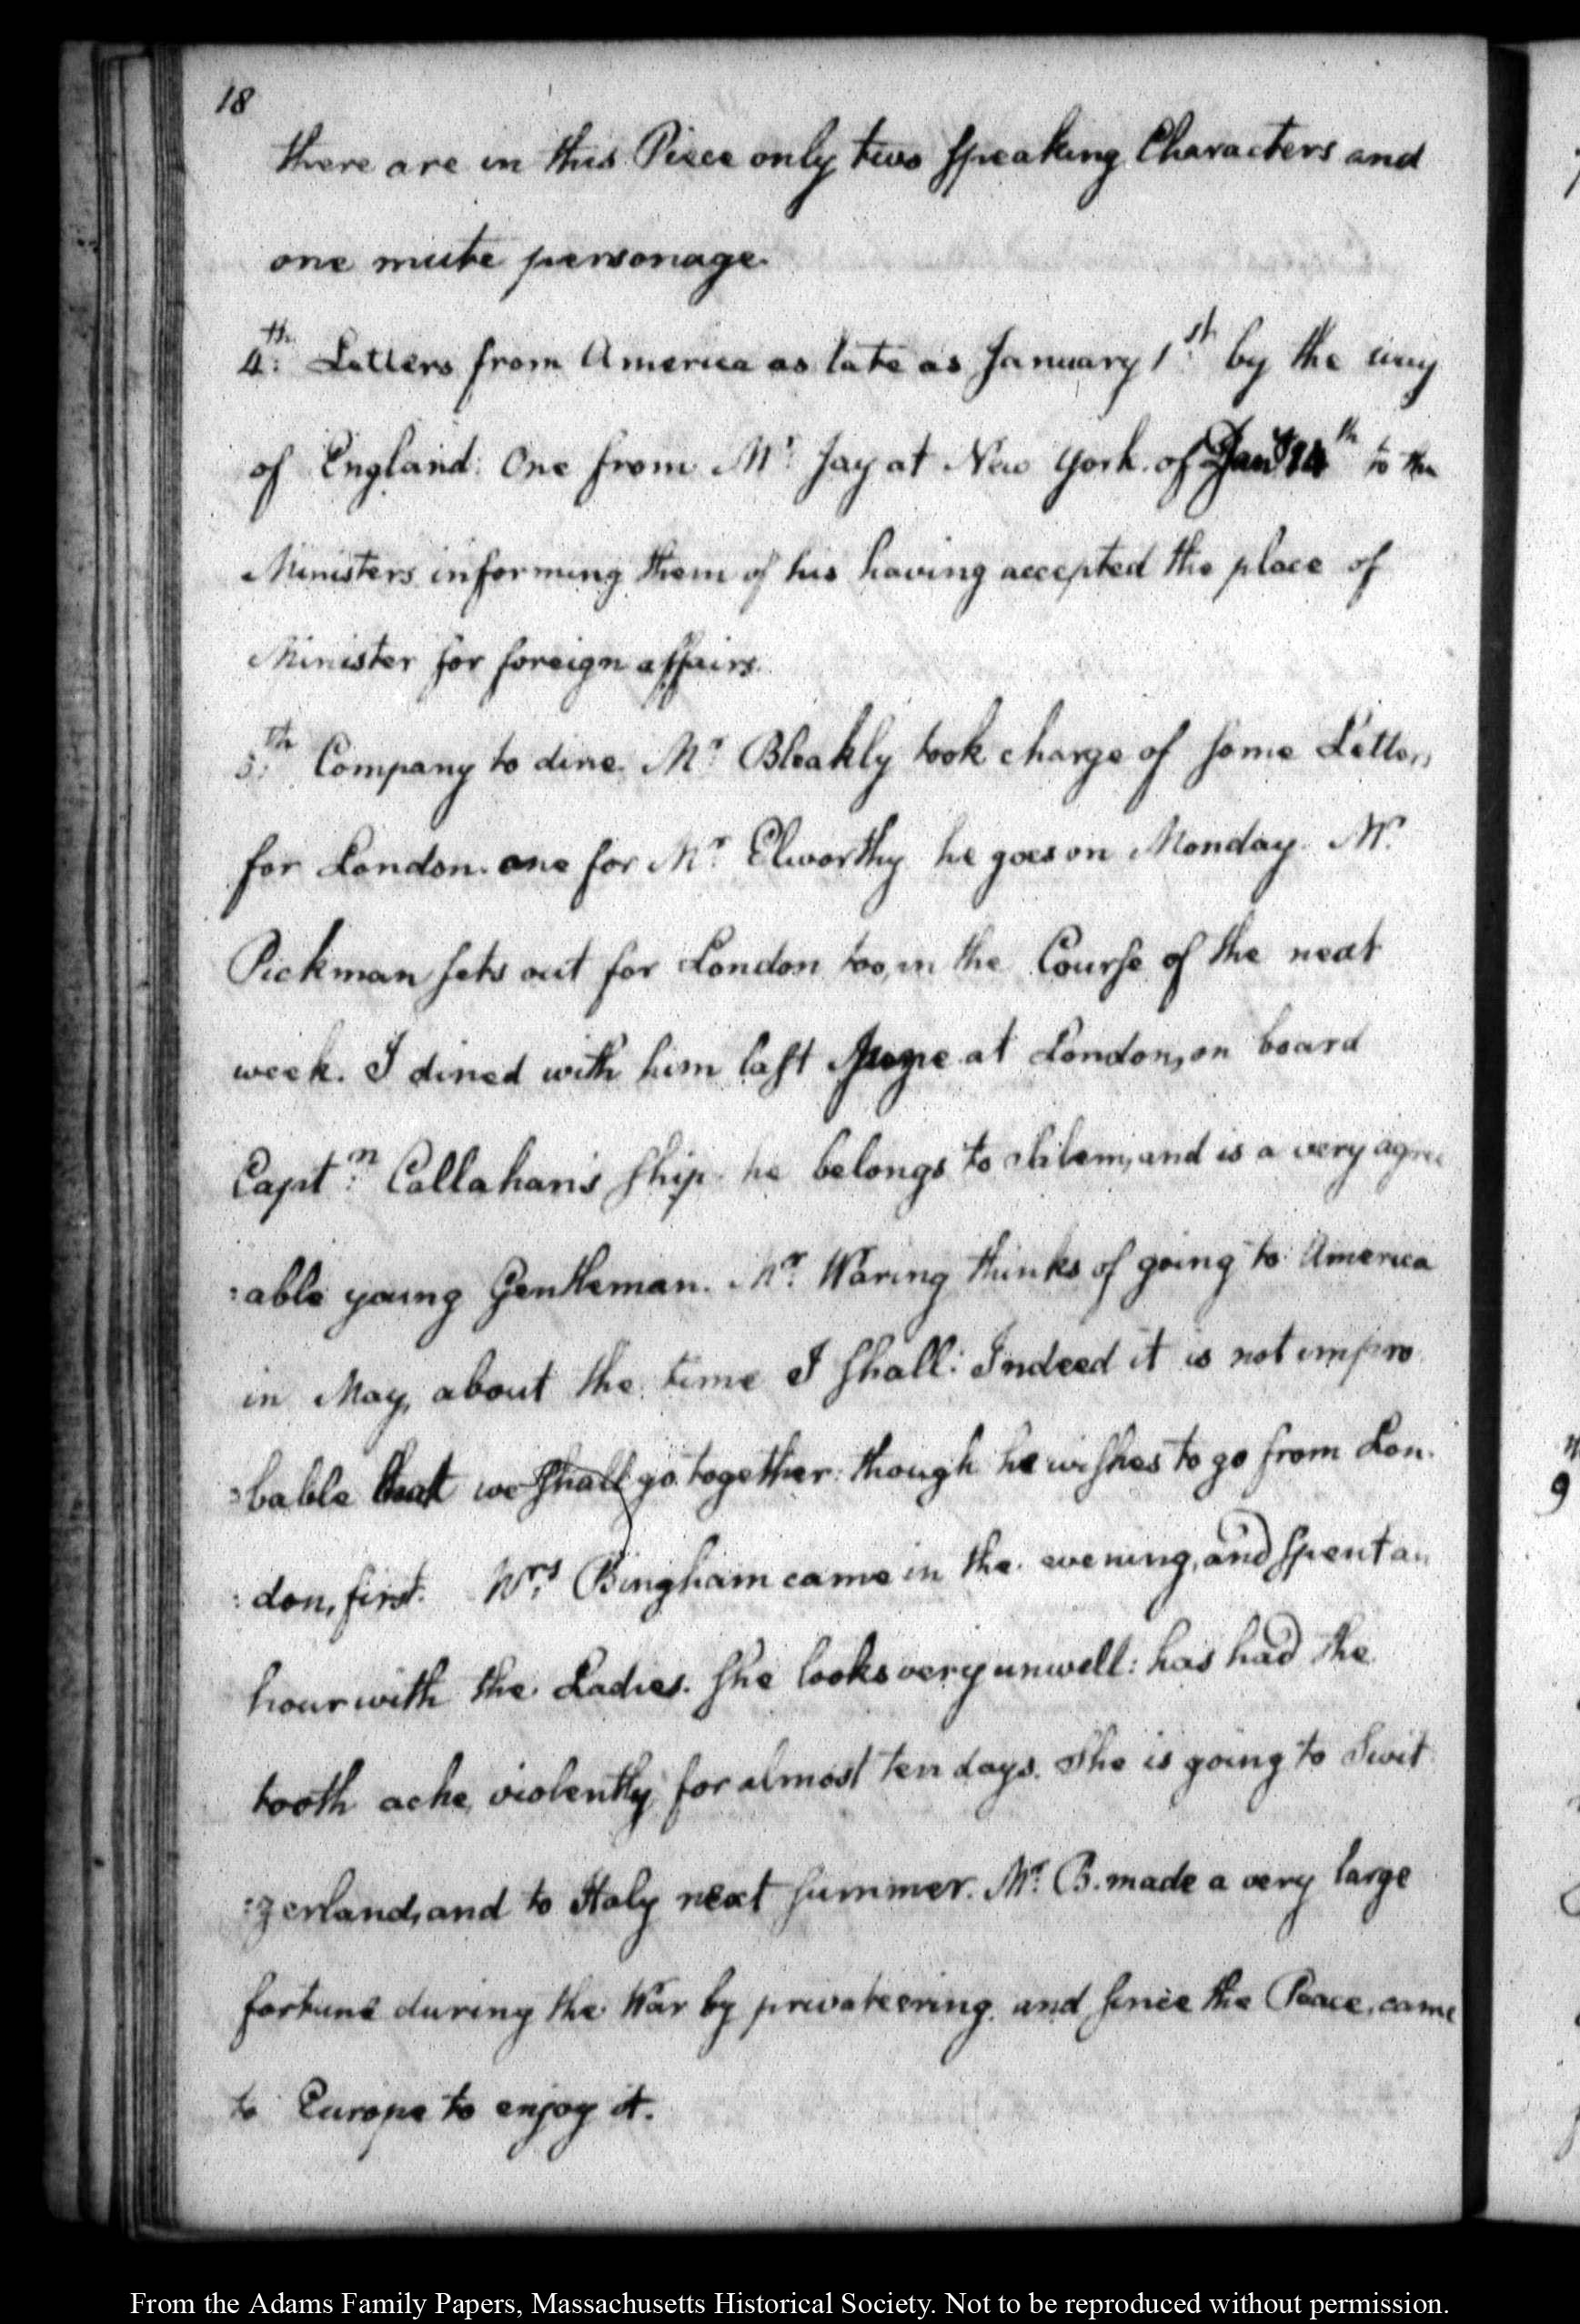 18
there are in this Piece only two speaking Characters and
one mute personage.
4th: Letters from America as late as January 1st: by the way
of England: One from Mr: Jay at New York. of 14th to the
Ministers informing them of his having accepted the place of
Minister for foreign affairs.
5th: Company to dine. Mr: Bleakly took charge of some Letters
for London. one for Mr: Elworthy he goes on Monday. Mr.
Pickman sets out for London too, in the Course of the next
week. I dined with him last at London, on board
Captn: Callahan's ship. he belongs to and is a very agree
:able young Gentleman. Mr: Waring thinks of going to America
in May, about the time I shall: Indeed it is not impro
:bable that we shall go together: though he wishes to go from Lon:
:don, first. Mrs: Bingham came in the evening, and spent an
hour with the Ladies. She looks very unwell: has had the
tooth ache, violently, for almost ten days. She is going to Swit
:zerland, and to Italy next summer. Mr: B. made a very large
fortune during the War by privateering, and since the Peace, came
to Europe to enjoy it.
From the Adams Family Papers, Massachusetts Historical Society. Not to be reproduced without permission.